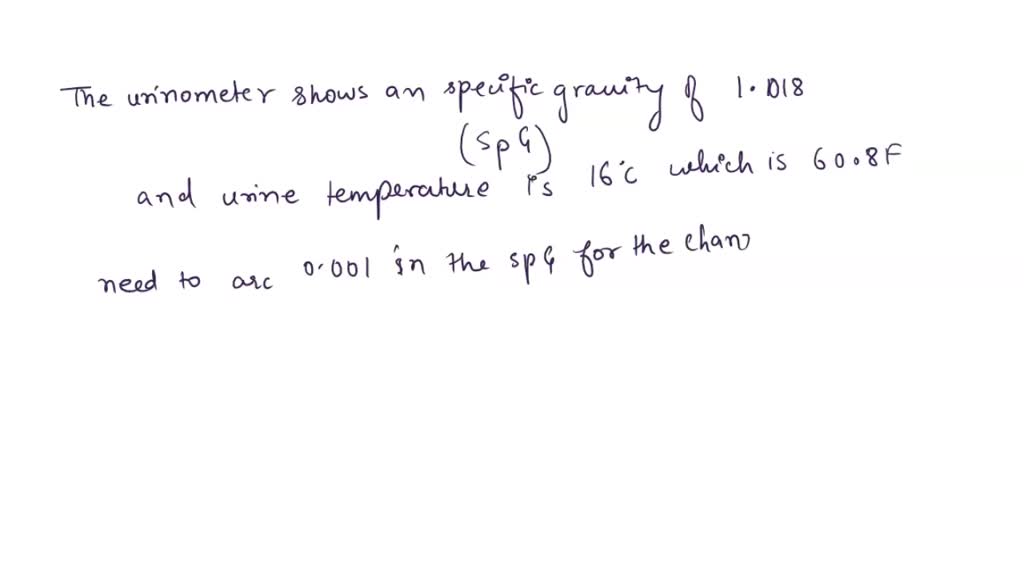 The urinometer shows an specific gravity of 1.018
(SpG)
and urine temperature is 16°c which is 60.8F
need to arc 0.001 in the SpG for the chan